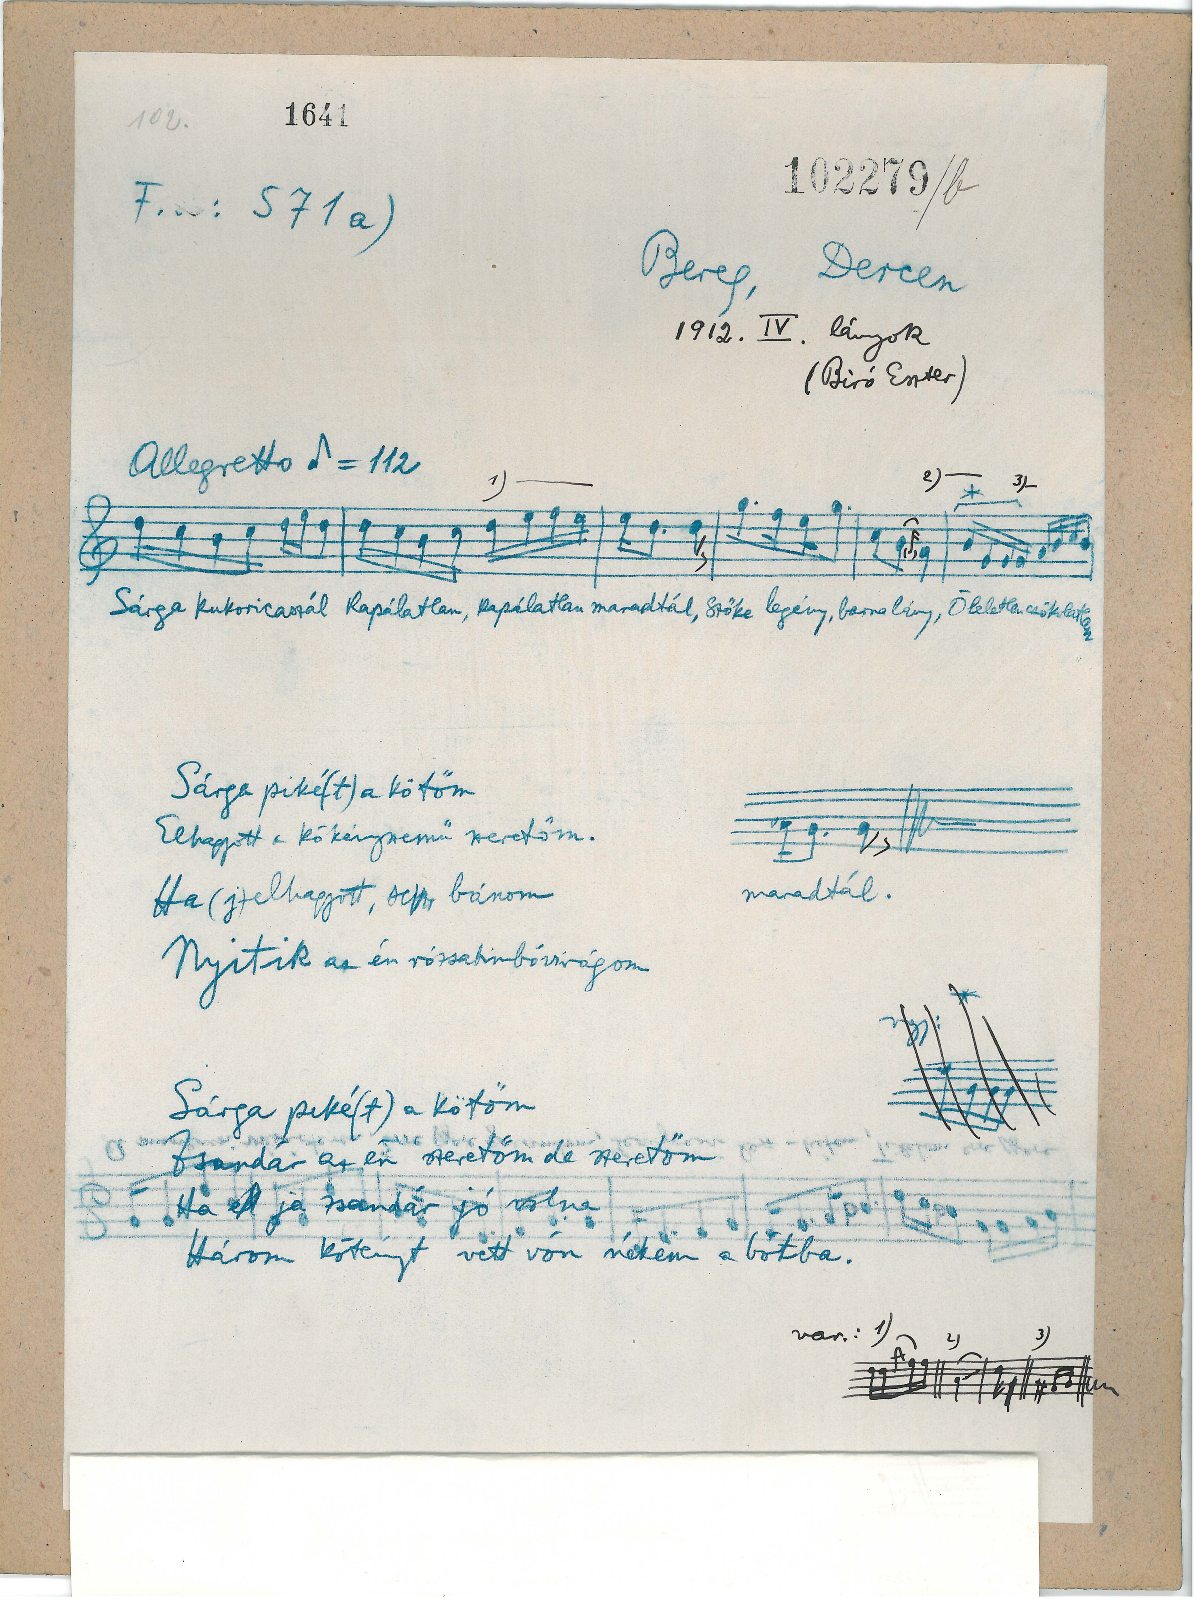 102.
1641
102279/b
F. : 571 a)
Bereg, Dercen
1912. IV. lányok
(Biró Eszter)
Allegretto ♪ = 112
1) 2) 3)
*
Sárga kukoricaszál Kapálatlan, kapálatlan maradtál, Szőke legény, barna lány, Öleletlen csókolatlan
Sárga piké(t) a kötőm
Elhagyott a kökényszemű szeretőm.
Ha (j) elhagyott, sem bánom
Nyitik az én rózsabimbóvirágom
maradtál.
*
Sárga piké(t) a kötőm
Zsandár az én szeretőm de szeretőm
Ha ja zsandár jó volna
Három kötényt vett vón nékem a bótba.
var.: 1) 2) 3)